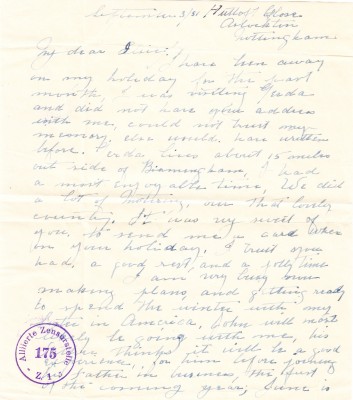 My dear
have been away
on my holiday for the past
month. I was visiting
and did not have your address
with me, could not trust my
memory, else would have written
before. lives about 15 miles
out side of Birmingham, I had
a most enjoyable time, We did
a lot of motoring, over that lovely
country. It was very sweet of
you, to send me a card when
on your holiday. I trust you
had a good rest, and a jolly time
I am very busy now
making plans, and getting ready
to spend the winter with my
in America, John will most
be going with me, his
thinks it will be a good
for him before joining
father in business, the first
of the coming year, June is
Alliierte Zensurstelle
175